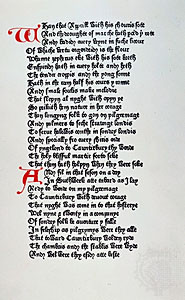 Whan that Apprill with his shouris sote
And the droughte of marche hath percid þe rote
And badid euery veyne in suche licour
Of whiche vertu engendrid is the flour
Whanne zepherus eke with his sote breth
Enspirid hath in euery holte and heth
The tendir croppis and the yong sonne
Hath in the ram half his cours y ronne
And smale foulis make melodie
That slepyn al nyght with opyn ye
So prikith hem nature in her corage
Than longyng folk to gon on pilgremage
And palmers to seche straunge londis
To serue halowis couthe in sondry londis
And specially fro euery shiris ende
Of yngelond to Cauntirbury thy wende
The holy blisful martir forto seke
That them hath holpyn whan they were seke
And fil in that seson on a day
In Suthwerk atte tabard as I lay
Redy to wende on my pilgremage
To Cauntirbury with deuout corage
That nyght was come in to that hosterye
Wel nyne & twenty in a companye
Of sondry folk be auenture y falle
In feleship as pilgrymys were they alle
That toward Cauntirbury wolden ryde
The chambris and the stablis were wyde
And wel were they esid atte beste